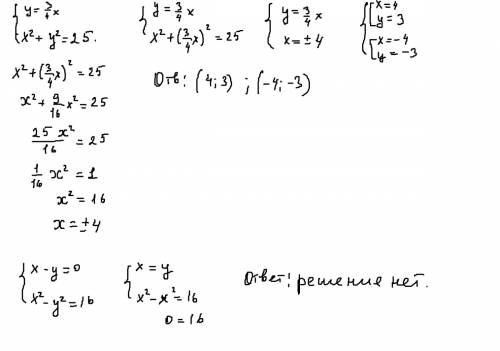 { y = 3/4 x
{ x² + y² = 25.
{ y = 3/4 x
{ x² + (3/4 x)² = 25
{ y = 3/4 x
{ x = ± 4
{ [ x = 4
[ y = 3
[ x = -4
[ y = -3
x² + (3/4 x)² = 25
x² + 9/16 x² = 25
25 x²/16 = 25
1/16 x² = 1
x² = 16
x = ± 4
Отв: (4; 3) ; (-4; -3)
{ x - y = 0
{ x² - y² = 16
{ x = y
{ x² - x² = 16
0 = 16
Ответ: решения нет.